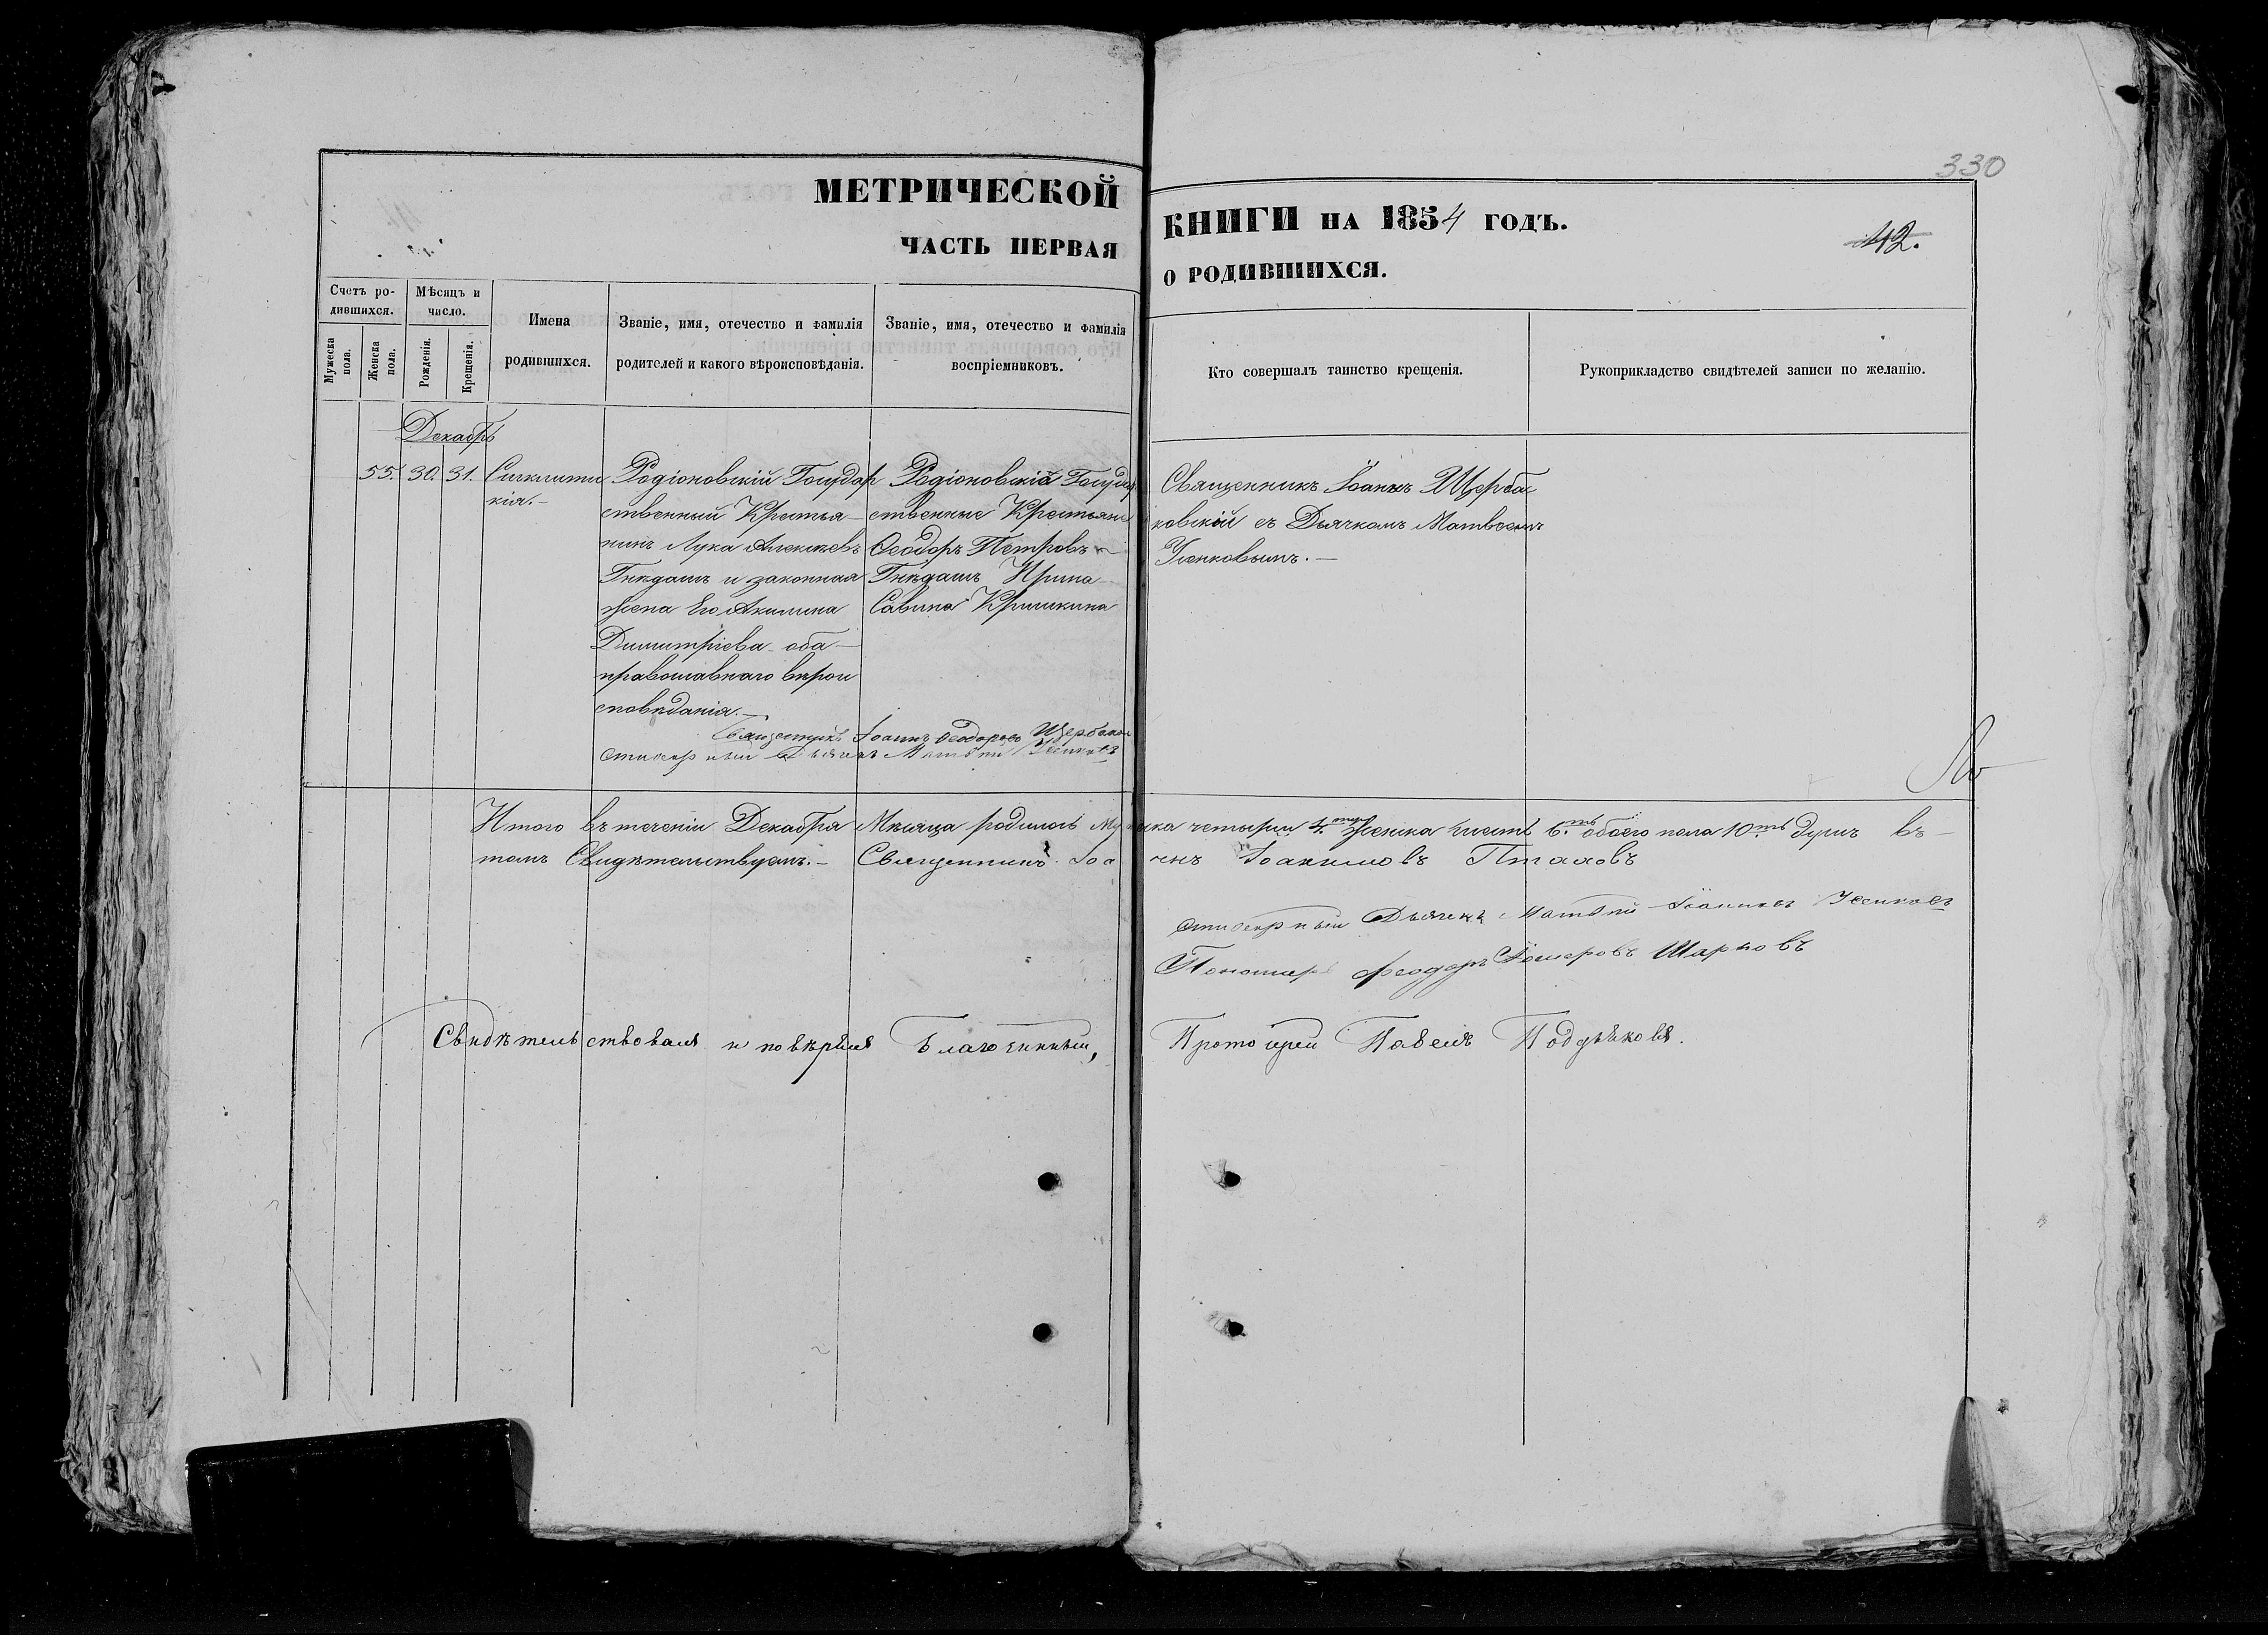 330
МЕТРИЧЕСКОЙ КНИГИ НА 1854 ГОДЪ.
42.
ЧАСТЬ ПЕРВАЯ О РОДИВШИХСЯ.
Счетъ ро-
дившихся.
Мужеска пола.
Женска пола.
Мѣсяцъ и
число.
Рожденія.
Крещенія.
Имена
родившихся.
Званіе, имя, отечество и фамилія
родителей и какого вѣроисповѣданія.
Званіе, имя, отечество и фамилія
воспріемниковъ.
Кто совершалъ таинство крещенія.
Рукоприкладство свидѣтелей записи по желанію.
Декабрь
55. 30. 31.
Сигклити
кія.-
Родіоновскій Государ
ственный Крестья-
нинъ Лука Алексѣевъ
Гнѣдашъ и законная
жена Его Акилина
Димитріева оба-
православнаго вѣрои
сповѣданія.-
Родіоновскіе Государ
ственные Крестьяне
Ѳеодоръ Петровъ
Гнѣдашъ Ирина
Савина Кришкина
Священникъ Іоаннъ Щерба
ковскій съ Дьячкомъ Матвѣемъ
Усенковымъ.-
Священникъ Іоаннъ Ѳеодоровъ
Дьячекъ Матвій Усенковъ
Итого въ теченіи Декабря Мѣсяца родилось Мужеска четыри 4. женска шесть 6.ть обоего пола 10ть душъ въ-
томъ Свидѣтельствуемъ.- Священникъ Іоаннъ Іоакимовъ
Дьячекъ Матвій Усенковъ
Пономарь Ѳеодоръ Шарковъ
Свидѣтельствовалъ и повѣрялъ Благочинный, Протоіерей Павелъ